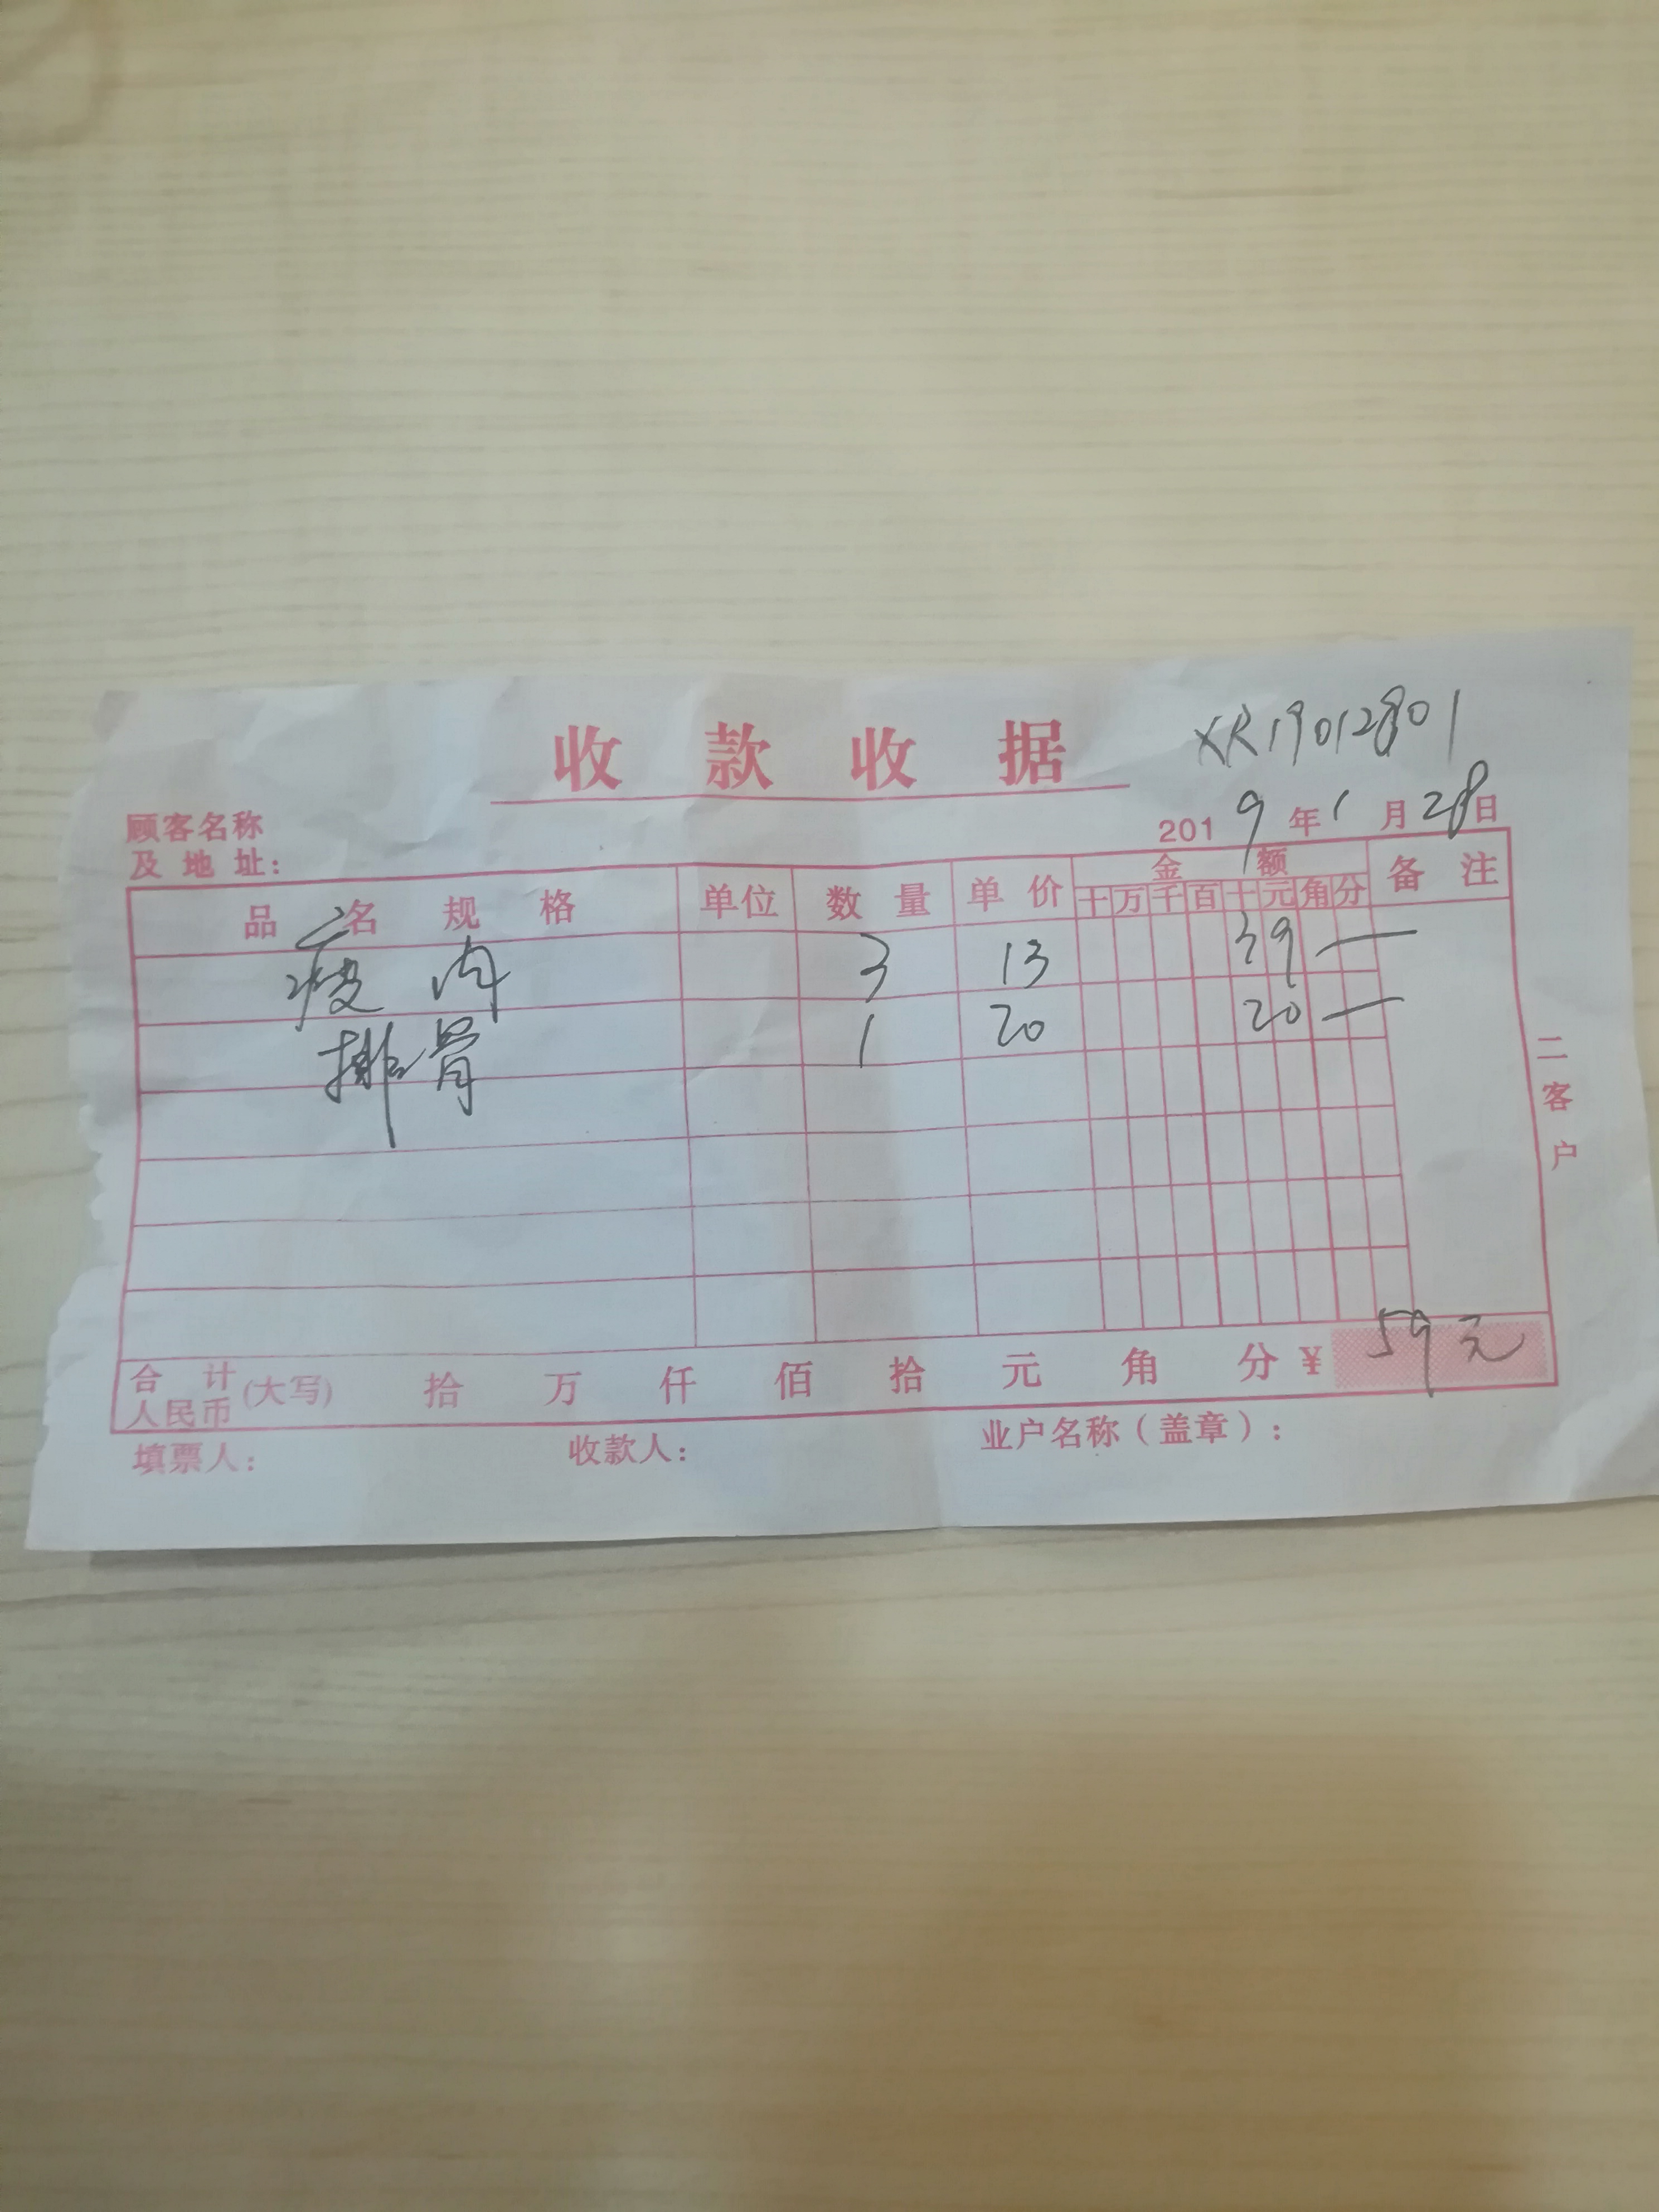 收款收据
XR19012801
顾客名称
及地址:
2019年1月28日
品名规格 单位 数量 单价 金额 备注
十万千百十元角分
瘦肉 3 13 39 —
排骨 1 20 20 —
二客户
合计
人民币
(大写) 拾 万 仟 佰 拾 元 角 分 ¥ 59元
填票人: 收款人: 业户名称(盖章):